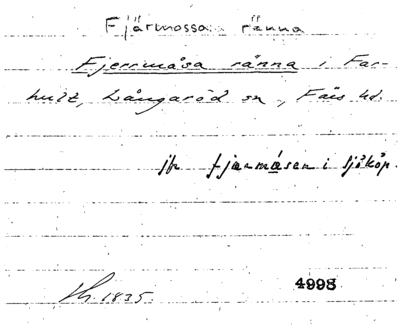 Fjärmossa ränna
Fjerrmåsa ränna i Far-
hult, Långaröd sn, Färs hd.
jfr fjärmåsen i Sjököp.
1835.
4998